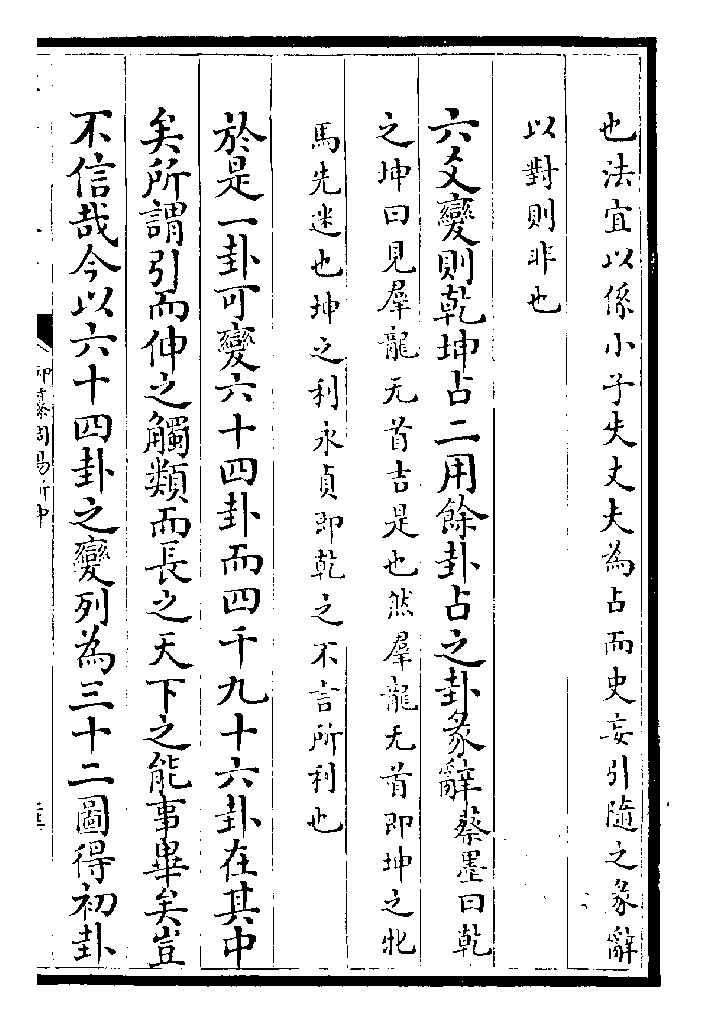 也法宜以係小子失丈夫為占而史妄引隨之彖辭
以對則非也
六爻變則乾坤占二用餘卦占之卦彖辭蔡墨曰乾
之坤曰見羣龍无首吉是也然羣龍无首即坤之牝
馬先迷也坤之利永貞即乾之不言所利也
於是一卦可變六十四卦而四千九十六卦在其中
矣所謂引而伸之觸類而長之天下之能事畢矣豈
不信哉今以六十四卦之變列為三十二圖得初卦
御纂周易折中